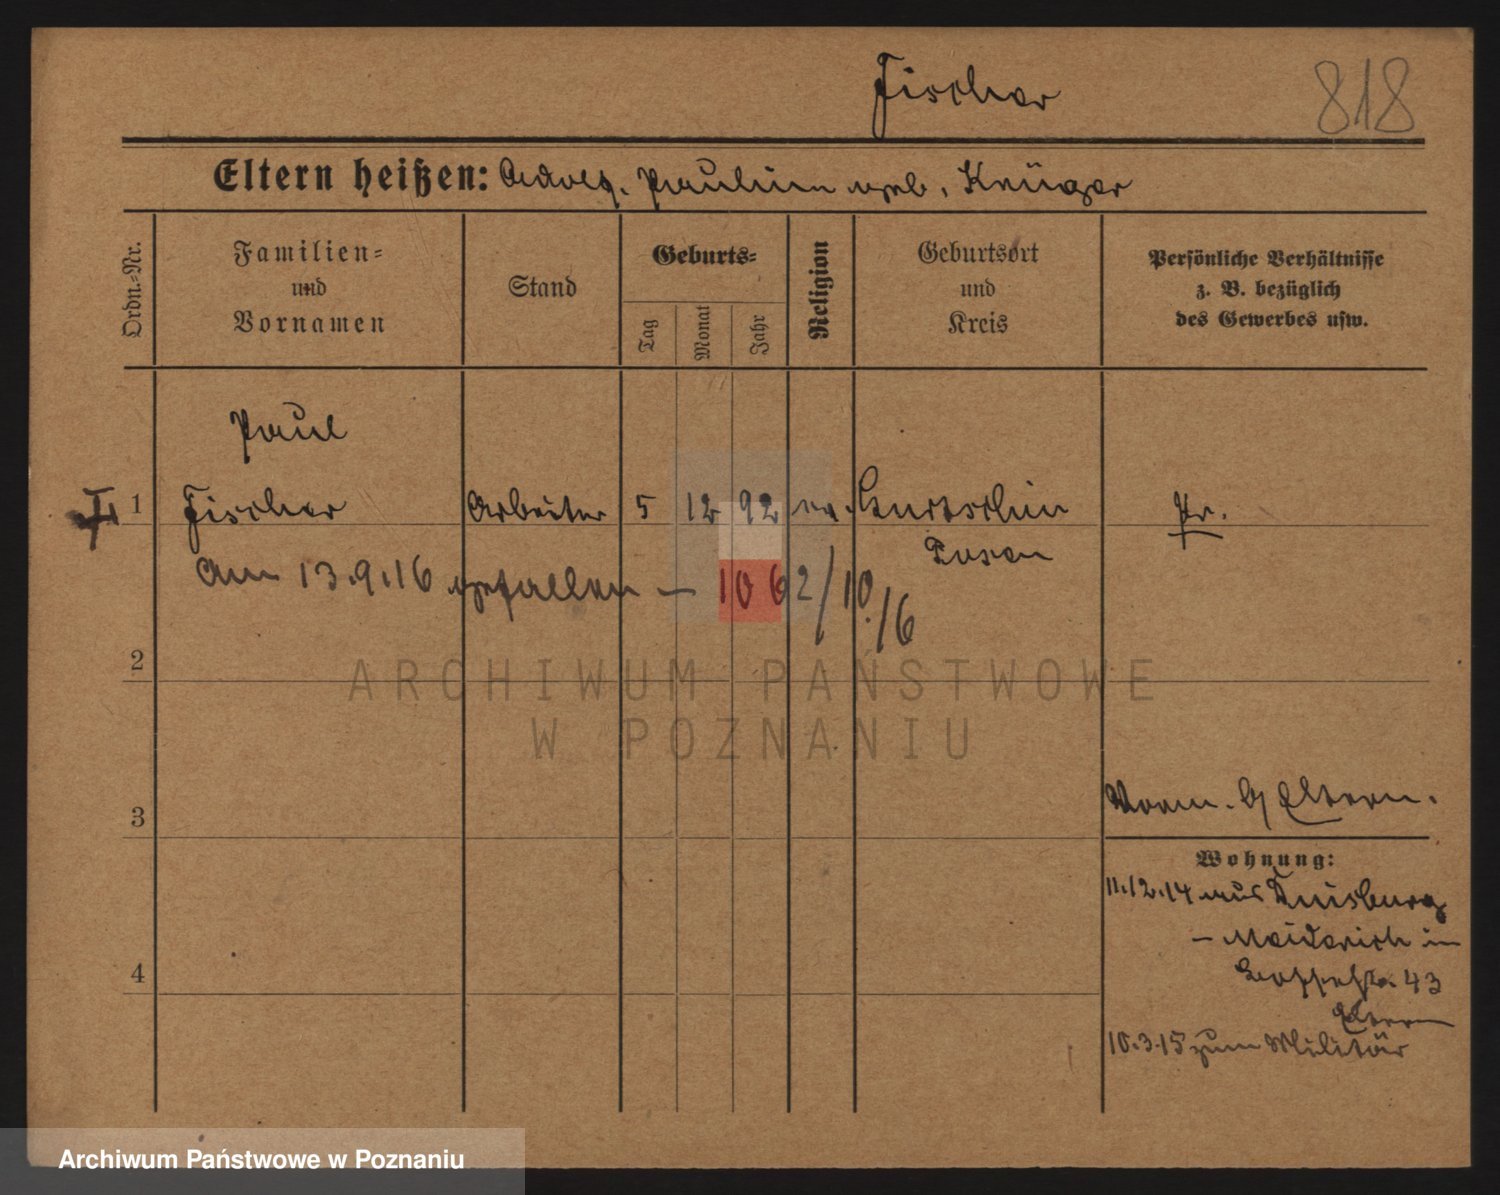 Fischer
818
Eltern heißen: Adolf. Paulina geb. Krüger
Ordn.=Nr.
Familien=
und
Vornamen
Stand
Geburts=
Tag
Monat
Jahr
Religion
Geburtsort
und
Kreis
Persönliche Verhältnisse
z. B. bezüglich
des Gewerbes usw.
Paul
1 Fischer Arbeiter 5 12 92 ev. Gurtschin Pr.
Posen
Am 13.9.16 gefallen — 1062/10./16
2
ARCHIWUM PAŃSTWOWE
W POZNANIU
3
Eltern.
Wohnung:
11.12.14 aus Duisburg
– Meiderich in
43
Eltern
10.3.15 zum Militär
4
Archiwum Państwowe w Poznaniu